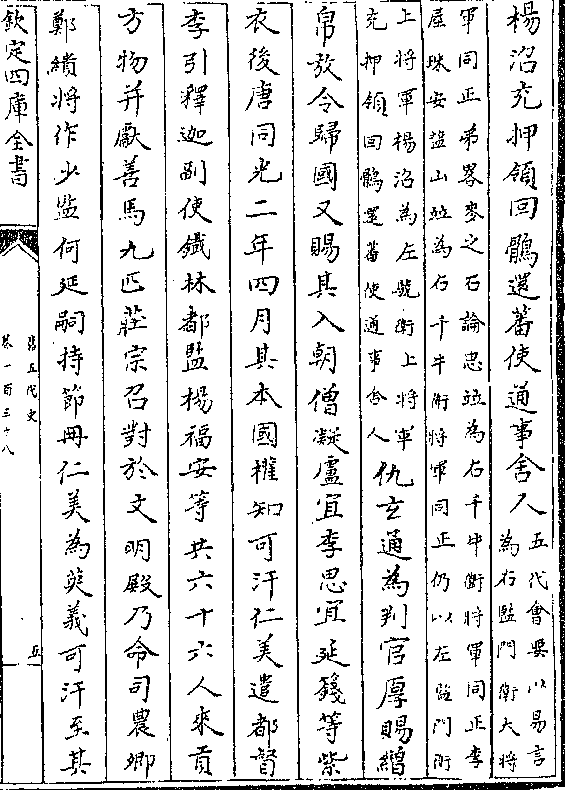 楊沼充押領回鶻還蕃使通事舍人五代會要以易言
為右監門衛大將
軍同正弟畧麥之石論忠竝為右千牛衛將軍同正李
屋珠安鹽山竝為右千牛衛將軍同正仍以左監門衛
上將軍楊沼為左驍衛上將軍
充押領回鶻還蕃使通事舍人仇玄通為判官厚賜繒
帛放令歸國又賜其入朝僧凝盧宜李思宜延籛等紫
衣後唐同光二年四月其本國權知可汗仁美遣都督
李引釋迦副使鐵林都監楊福安等共六十六人來貢
方物并獻善馬九匹莊宗召對於文明殿乃命司農卿
鄭績將作少監何延嗣持節冊仁美為英義可汗至其
欽定四庫全書
舊五代史
卷一百三十八
五